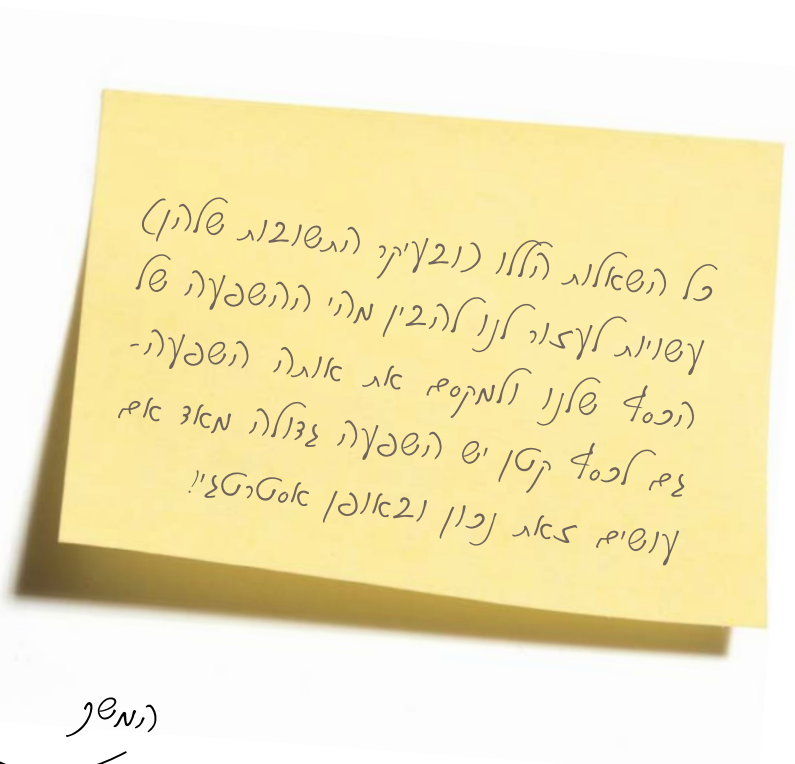 כל השאלות הללו (ובעיקר התשובות שלהן)
עשויות לעזור לנו להבין מהי ההשפעה של
הכסף שלנו ולמקסם את אותה השפעה-
גם לכסף קטן יש השפעה גדולה מאד אם
עושים זאת נכון ובאופן אסטרטגי!
המשך